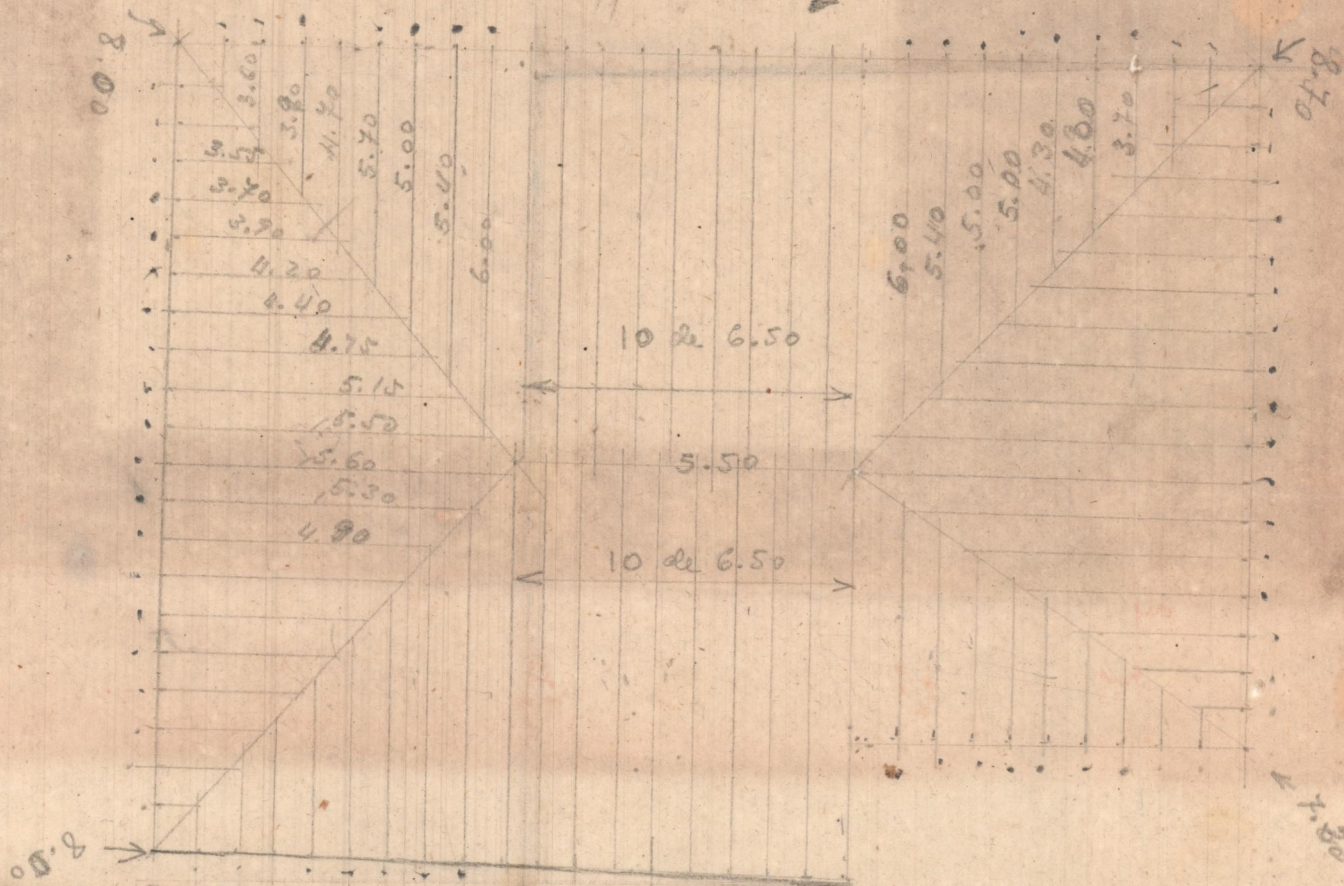 8.00
3.60
3.90
4.70
5.70
5.00
5.40
6.00
3.70
3.90
4.20
4.40
4.75
5.15
5.50
5.60
5.30
4.90
10 de 6.50
5.50
10 de 6.50
6.00
5.40
5.00
5.00
4.30
3.70
8.70
8.00